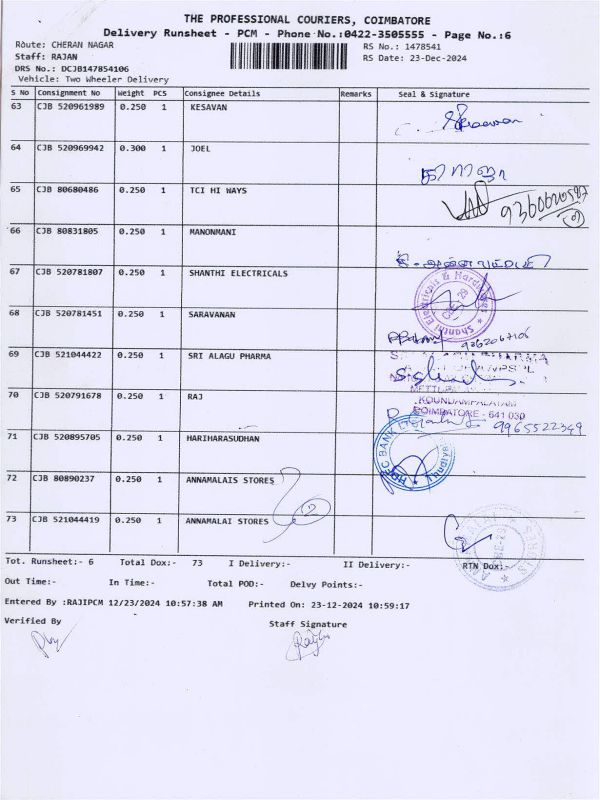 THE PROFESSIONAL COURIERS, COIMBATORE
Delivery Runsheet - PCM - Phone No.:0422-3505555 - Page No.:6
Route: CHERAN NAGAR RS No.: 1478541
Staff: RAJAN RS Date: 23-Dec-2024
DRS No.: DCJB147854106
Vehicle: Two Wheeler Delivery
S No Consignment No Weight PCS Consignee Details Remarks Seal & Signature
63 CJB 520961989 0.250 1 KESAVAN
64 CJB 520969942 0.300 1 JOEL
65 CJB 80680486 0.250 1 TCI HI WAYS
66 CJB 80831805 0.250 1 MANONMANI
67 CJB 520781807 0.250 1 SHANTHI ELECTRICALS
Shanthi Electricals & Hardwares
68 CJB 520781451 0.250 1 SARAVANAN
69 CJB 521044422 0.250 1 SRI ALAGU PHARMA
70 CJB 520791678 0.250 1 RAJ
KOUNDAMPALAYAM
COIMBATORE - 641 030
9965522349
71 CJB 520895705 0.250 1 HARIHARASUDHAN
HDFC BANK LTD
72 CJB 80890237 0.250 1 ANNAMALAIS STORES
2
73 CJB 521044419 0.250 1 ANNAMALAI STORES
Tot. Runsheet:- 6 Total Dox:- 73 I Delivery:- II Delivery:- RTN Dox:-
Out Time:- In Time:- Total POD:- Delvy Points:-
Entered By :RAJIPCM 12/23/2024 10:57:38 AM Printed On: 23-12-2024 10:59:17
Verified By Staff Signature